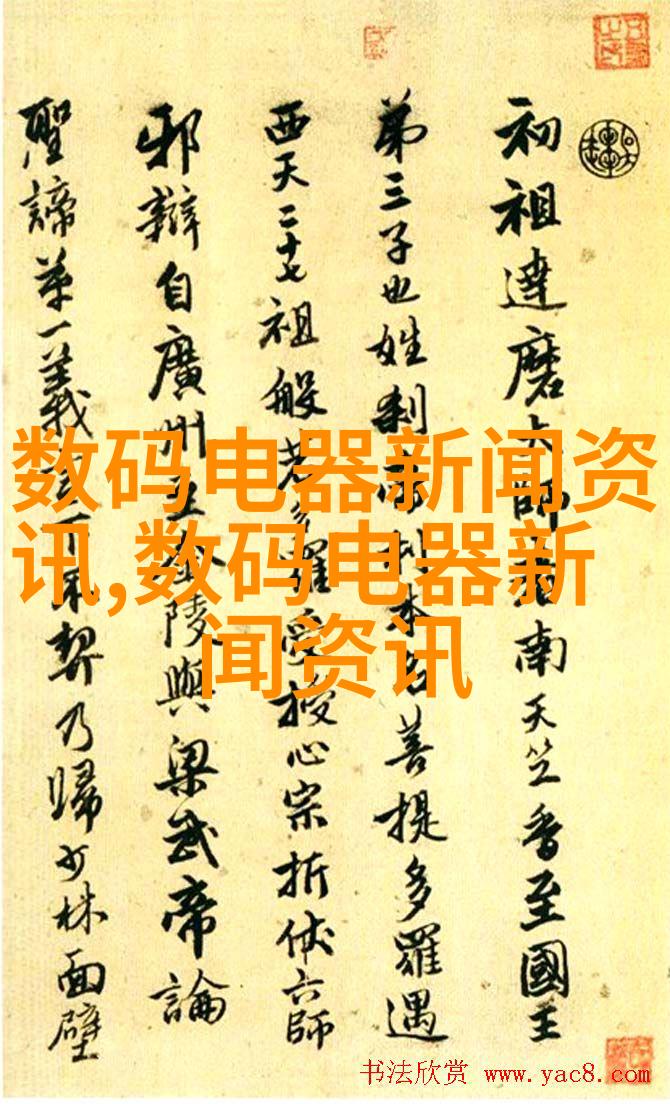 初祖達磨大師者南天竺香至國王
第三子也姓刹帝利本名菩提多羅遇
西天二十七祖般若多羅受授心宗折伏六師
邪辯自廣州至金陵與梁武帝論
聖諦第一義不契乃歸少林面壁
数码电器新闻资
讯,数码电器新
闻资讯
书法欣赏 www.yac8.com